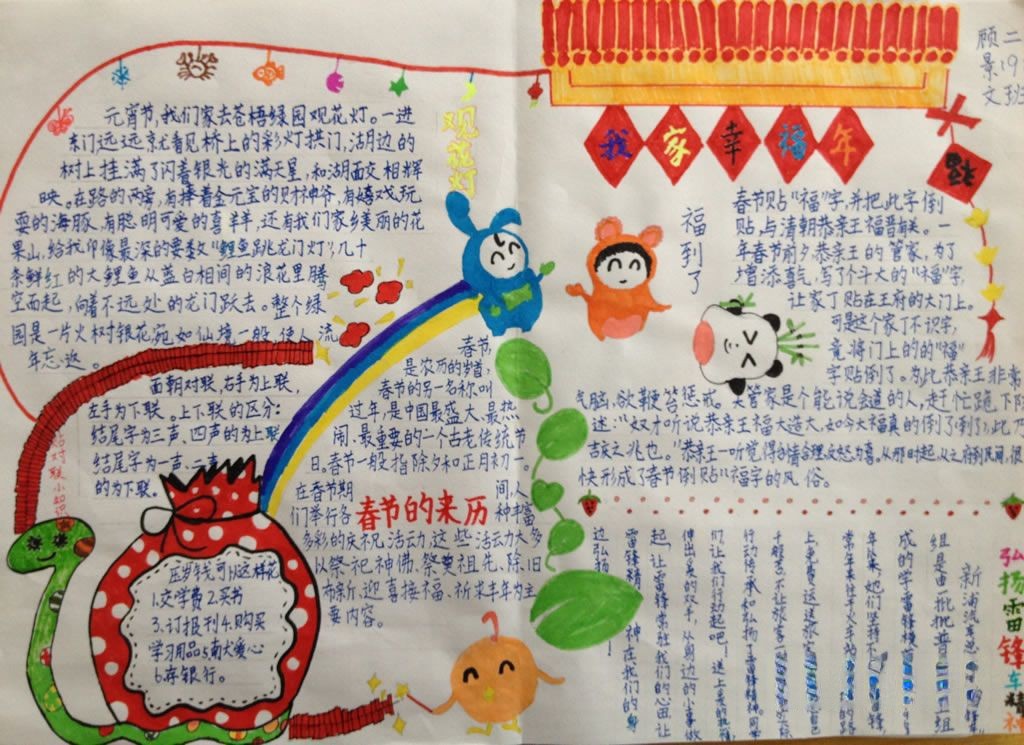 我家幸福年
二
19
班
顾
景
文
福
观花灯
元宵节,我们家去苍梧绿园观花灯。一进
东门远远就看见桥上的彩灯拱门,湖边的
树上挂满了闪着银光的满天星,和湖面交相辉
映。在路的两旁,有捧着金元宝的财神爷,有嬉戏玩
耍的海豚,有聪明可爱的喜羊羊,还有我们家乡美丽的花
果山,给我印像最深的要数“鲤鱼跳龙门灯”,几十
条鲜红的大鲤鱼从蓝白相间的浪花里腾
空而起,向着不远处的龙门跃去。整个绿
园是一片火树银花,宛如仙境一般,使人流
年忘返。
贴对联小知识
面朝对联,右手为上联,
左手为下联。上下联的区分:
结尾字为三声、四声的为上联
结尾字为一声、二声
的为下联。
压岁钱可以这样花
1.交学费2.买书
3.订报刊4.购买
学习用品5.南大爱心
6.存银行。
春节的来历
春节,
是农历的岁首,
春节的另一名称叫
过年,是中国最盛大、最热
闹、最重要的一个古老传统节
日。春节一般指除夕和正月初一。
在春节期间,人
们举行各种丰富
多彩的庆祝活动,这些活动大多
以祭祀神佛、祭奠祖先、除旧
布新、迎喜接福、祈求丰年为主
要内容。
福到了
春节贴“福”字,并把此字倒
贴,与清朝恭亲王福晋有关。一
年春节前夕恭亲王的管家,为了
增添喜气,写了个斗大的“福”字,
让家丁贴在王府的大门上。
可是这个家丁不识字,
竟将门上的的“福”
字贴倒了。为此恭亲王非常
气脑,欲鞭笞惩戒。大管家是个能说会道的人,赶忙跪下
述:“奴才听说恭亲王福大造大,如今大福真的倒了(到了),此乃
吉庆之兆也。”恭亲王一听觉得合情合理
从那时起,
快形成了春节倒贴“福”字的风俗。
弘扬雷锋车精神
新浦汽车总
组是由一批批普
成的学雷锋模
年以来,她们坚持
常年来往于火车站
上,免费
行动传承和弘扬了雷锋精神。同学
们,让我们行动起吧!送上美的祝福
伸出爱的双手,从身边的小事做
起,让雷锋常驻我们的心田,让
雷锋精神在我们的身
边弘扬!